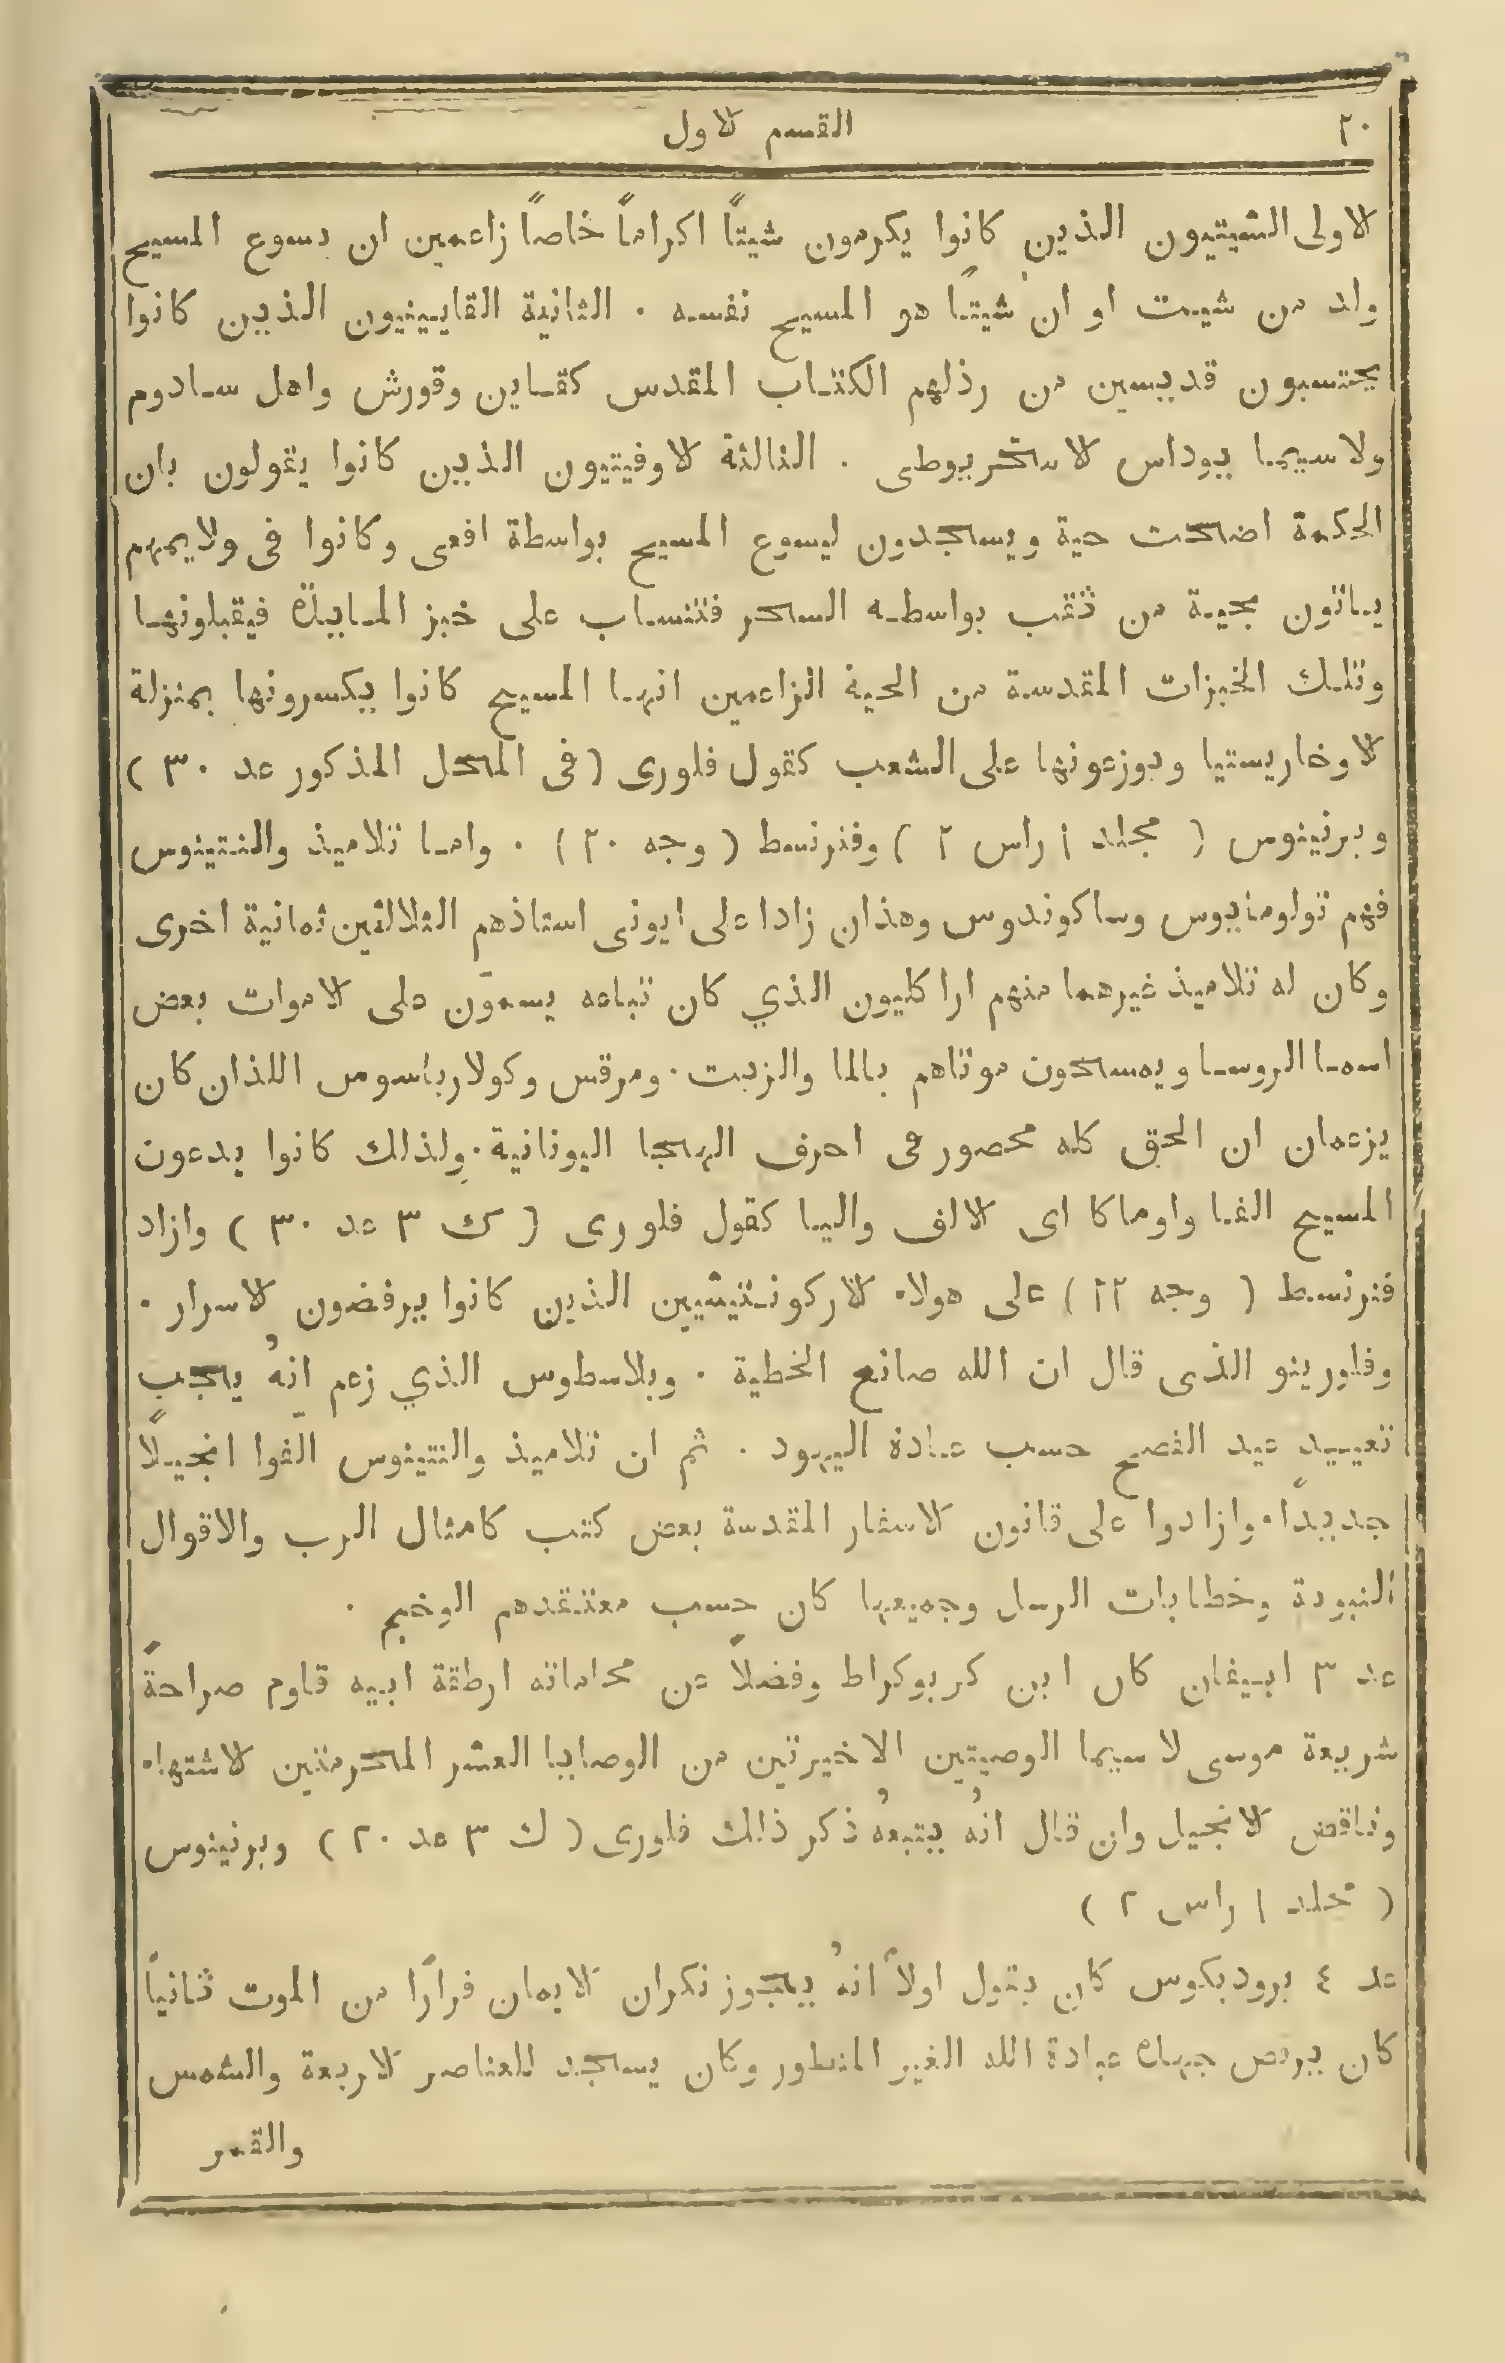 ٢٠
القسم الاول
الاولى الشيتيون الذين كانوا يكرمون شيتًا اكرامًا خاصًا زاعمين ان يسوع المسيح
ولد من شيت او ان شيتًا هو المسيح نفسه . الثانية القايينيون الذين كانوا
يحتسبون قديسين من رذلهم الكتاب المقدس كقاين وقورش واهل سادوم
ولاسيما يوداس الاسخريوطى . الثالثة الاوفيتيون الذين كانوا يقولون بان
الحكمة اضحت حية ويسجدون ليسوع المسيح بواسطة افعى وكانوا فى ولايمهم
ياتون بحية من ثقب بواسطه السحر فتنساب على خبز المايدة فيقبلونها
وتلك الخبزات المقدسة من الحية الزاعمين انها المسيح كانوا يكسرونها بمنزلة
الاوخاريستيا ويوزعونها على الشعب كقول فلورى (فى المحل المذكور عد ٣٠ )
وبرنينوس ( مجلد ١ راس ٢ ) وفنرنسط ( وجه ٢٠ ) . واما تلاميذ والنتينوس
فهم تولومايوس وساكوندوس وهذان زادا على ايونى استاذهم الثلاثين ثمانية اخرى
وكان له تلاميذ غيرهما منهم اراكليون الذي كان تباعه يسمون على الاموات بعض
اسما الروسا ويمسحون موتاهم بالما والزيت . ومرقس وكولارباسوس اللذان كان
يزعمان ان الحق كله محصور فى احرف الهجا اليونانية . ولذلك كانوا يدعون
المسيح الفا واوماكا اى الالف واليا كقول فلورى ( ك ٣ عد ٣٠ ) وازاد
فنرنسط ( وجه ٢٢ ) على هولاء الاركونتيشيين الذين كانوا يرفضون الاسرار .
وفلورينو الذى قال ان الله صانع الخطية . وبلاسطوس الذي زعم انهُ يجب
تعييد عيد الفصح حسب عادة اليهود . ثم ان تلاميذ والنتينوس الّفوا انجيلًا
جديدًا . وازادوا على قانون الاسفار المقدسة بعض كتب كامثال الرب والاقوال
النبوية وخطابات الرسل وجميعها كان حسب معتقدهم الوخيم .
عد ٣ ابيفان كان ابن كربوكراط وفضلًا عن محاماته ارطقة ابيه قاوم صراحةً
شريعة موسى لا سيما الوصيتين الاخيرتين من الوصايا العشر المحرمتين الاشتهاء
وناقض الانجيل وان قال انهُ يتبعهُ ذكر ذلك فلورى ( ك ٣ عد ٢٠ ) وبرنينوس
( مجلد ١ راس ٢ )
عد ٤ بروديكوس كان يقول اولًا انهُ يجوز نكران الايمان فرارًا من الموت ثانيًا
كان يرفض جهاد عبادة الله الغير المنظور وكان يسجد للعناصر الاربعة والشمس
والقمر